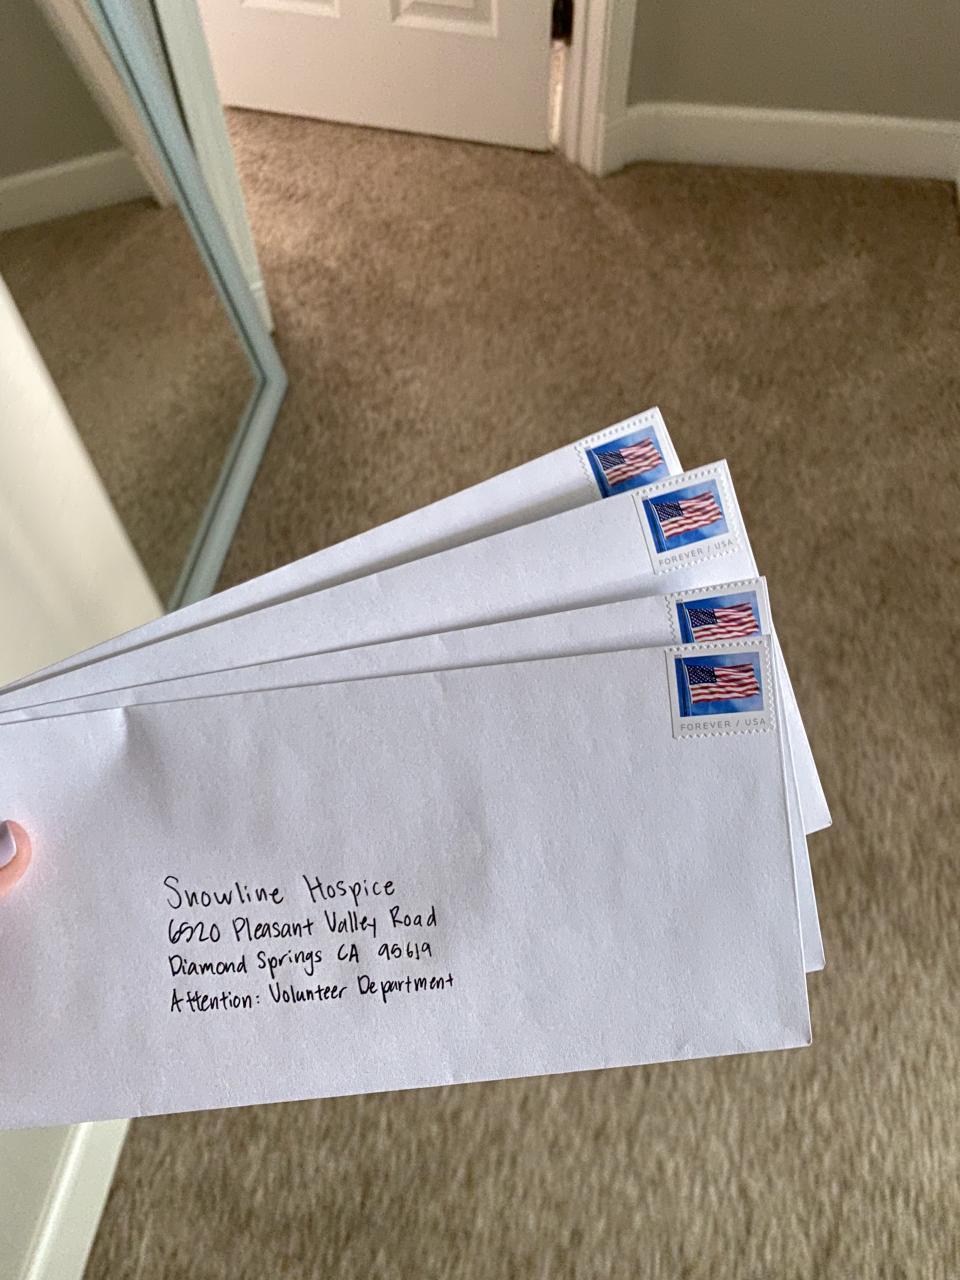 FOREVER / USA
FOREVER / USA
Snowline Hospice
6520 Pleasant Valley Road
Diamond Springs CA 95619
Attention: Volunteer Department